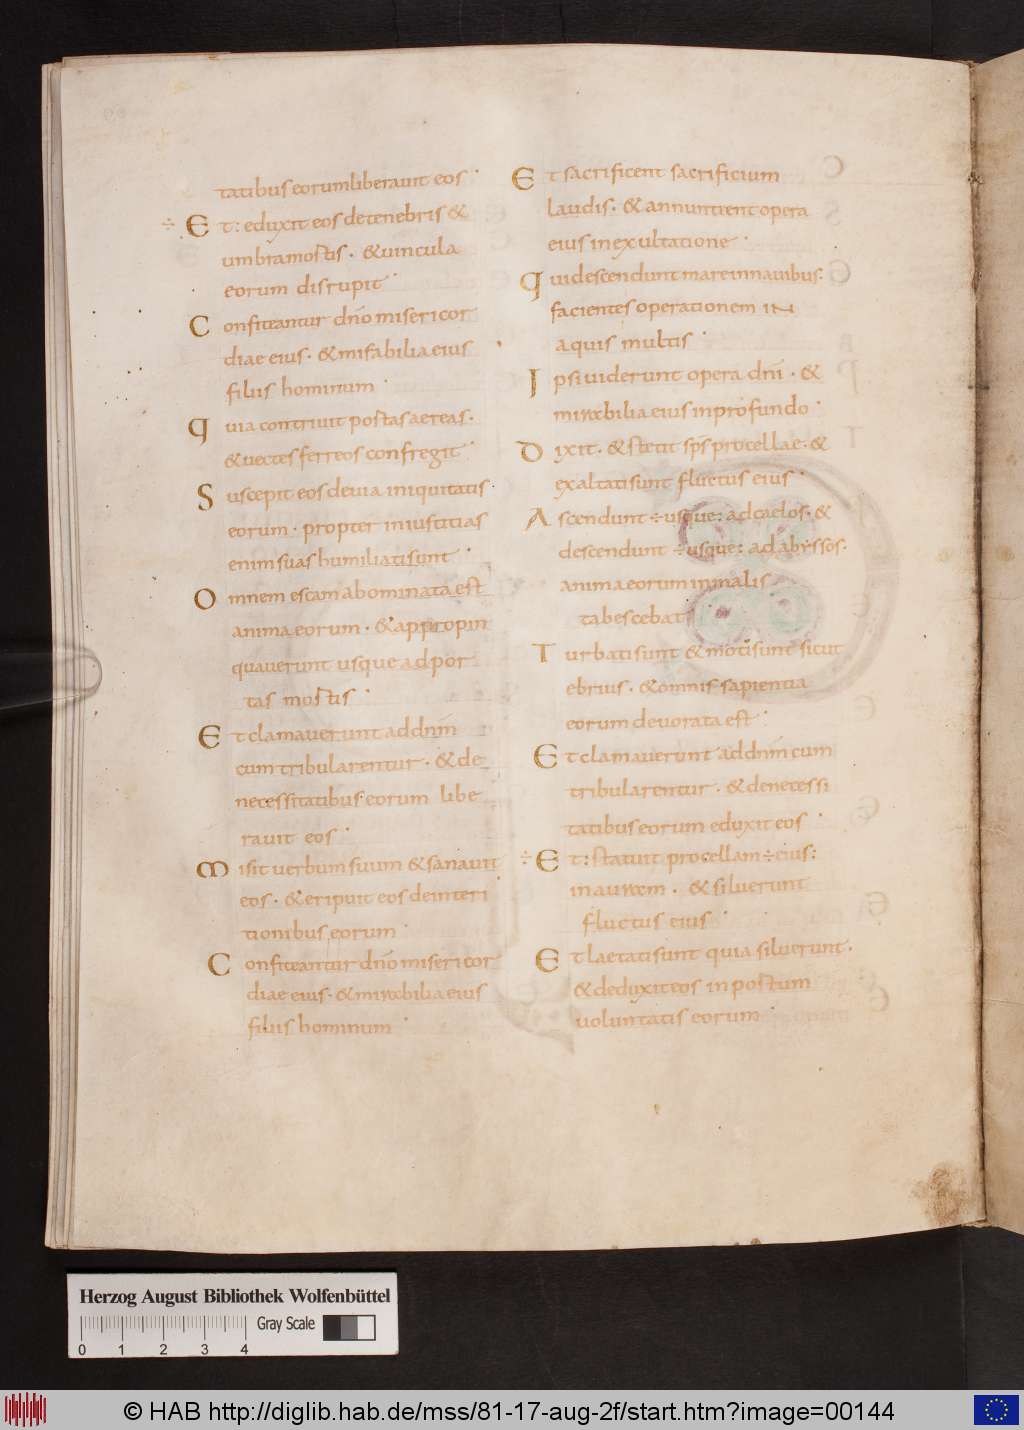 tatibus eorum liberauit eos ·
÷ Et: eduxit eos de tenebris &
umbra mortis · & uincula
eorum disrupit ·
Confiteantur dn̄o misericor
diae eius · & mirabilia eius
filiis hominum ·
Quia contriuit portas aereas ·
& uectes ferreos confregit ·
Suscepit eos de uia iniquitatis ·
eorum · propter iniustitias
enim suas humiliati sunt ·
Omnem escam abominata est
anima eorum · & appropin
quauerunt usque ad por
tas mortis ·
Et clamauerunt ad dn̄m
cum tribularentur · & de
necessitatibus eorum libe
rauit eos ·
Misit uerbum suum & sanauit
eos · & eripuit eos de interi
tionibus eorum ·
Confiteantur dn̄o misericor
diae eius · & mirabilia eius
filiis hominum ·
Et sacrificent sacrificium
laudis · & annuntient opera
eius in exultatione ·
Qui descendunt mare in nauibus ·
facientes operationem in
aquis multis ·
Ipsi uiderunt opera dn̄i · &
mirabilia eius in profundo ·
Dixit · & stetit sp̄s procellae · &
exaltati sunt fluctus eius ·
Ascendunt ÷ usque: ad caelos · &
descendunt ÷ usque: ad abyssos ·
anima eorum in malis
tabescebat ·
Turbati sunt & moti sunt sicut
ebrius · & omnis sapientia
eorum deuorata est ·
Et clamauerunt ad dn̄m cum
tribularentur · & de necessi
tatibus eorum eduxit eos ·
÷ Et: statuit procellam ÷ eius:
in auram · & siluerunt
fluctus eius ·
Et laetati sunt quia siluerunt ·
& deduxit eos in portum
uoluntatis eorum ·
Herzog August Bibliothek Wolfenbüttel
Gray Scale
0 1 2 3 4
© HAB http://diglib.hab.de/mss/81-17-aug-2f/start.htm?image=00144